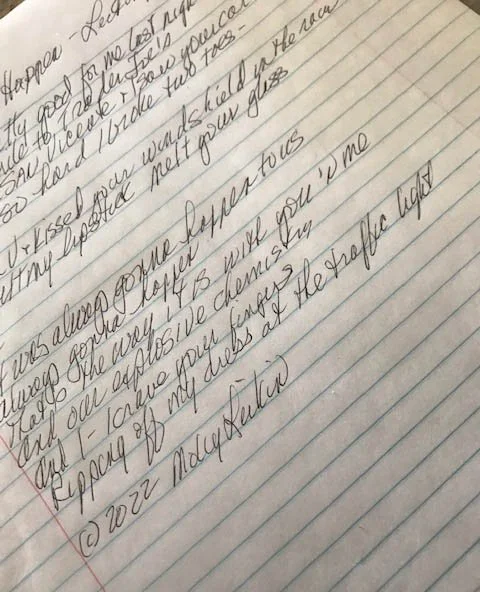 Happen - Lectu
tty good for me last nigh
de to Trader Joe's
San Vicente & I saw your car
so hard I broke two toes -
& kissed your windshield in the rain
ett my lipstick melt your glass
t was always gonna happen to us
always gonna happen
That's the way it is with you 'n me
and our explosive chemistry
and I - I crave your fingers
Ripping off my dress at the traffic light
© 2022